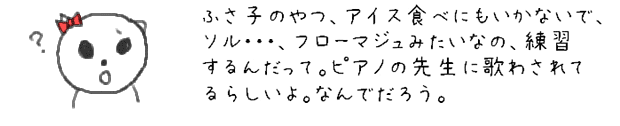 ?
ふさ子のやつ、アイス食べにもいかないで、
ソル・・・、フローマジュみたいなの、練習
するんだって。ピアノの先生に歌わされて
るらしいよ。なんでだろう。